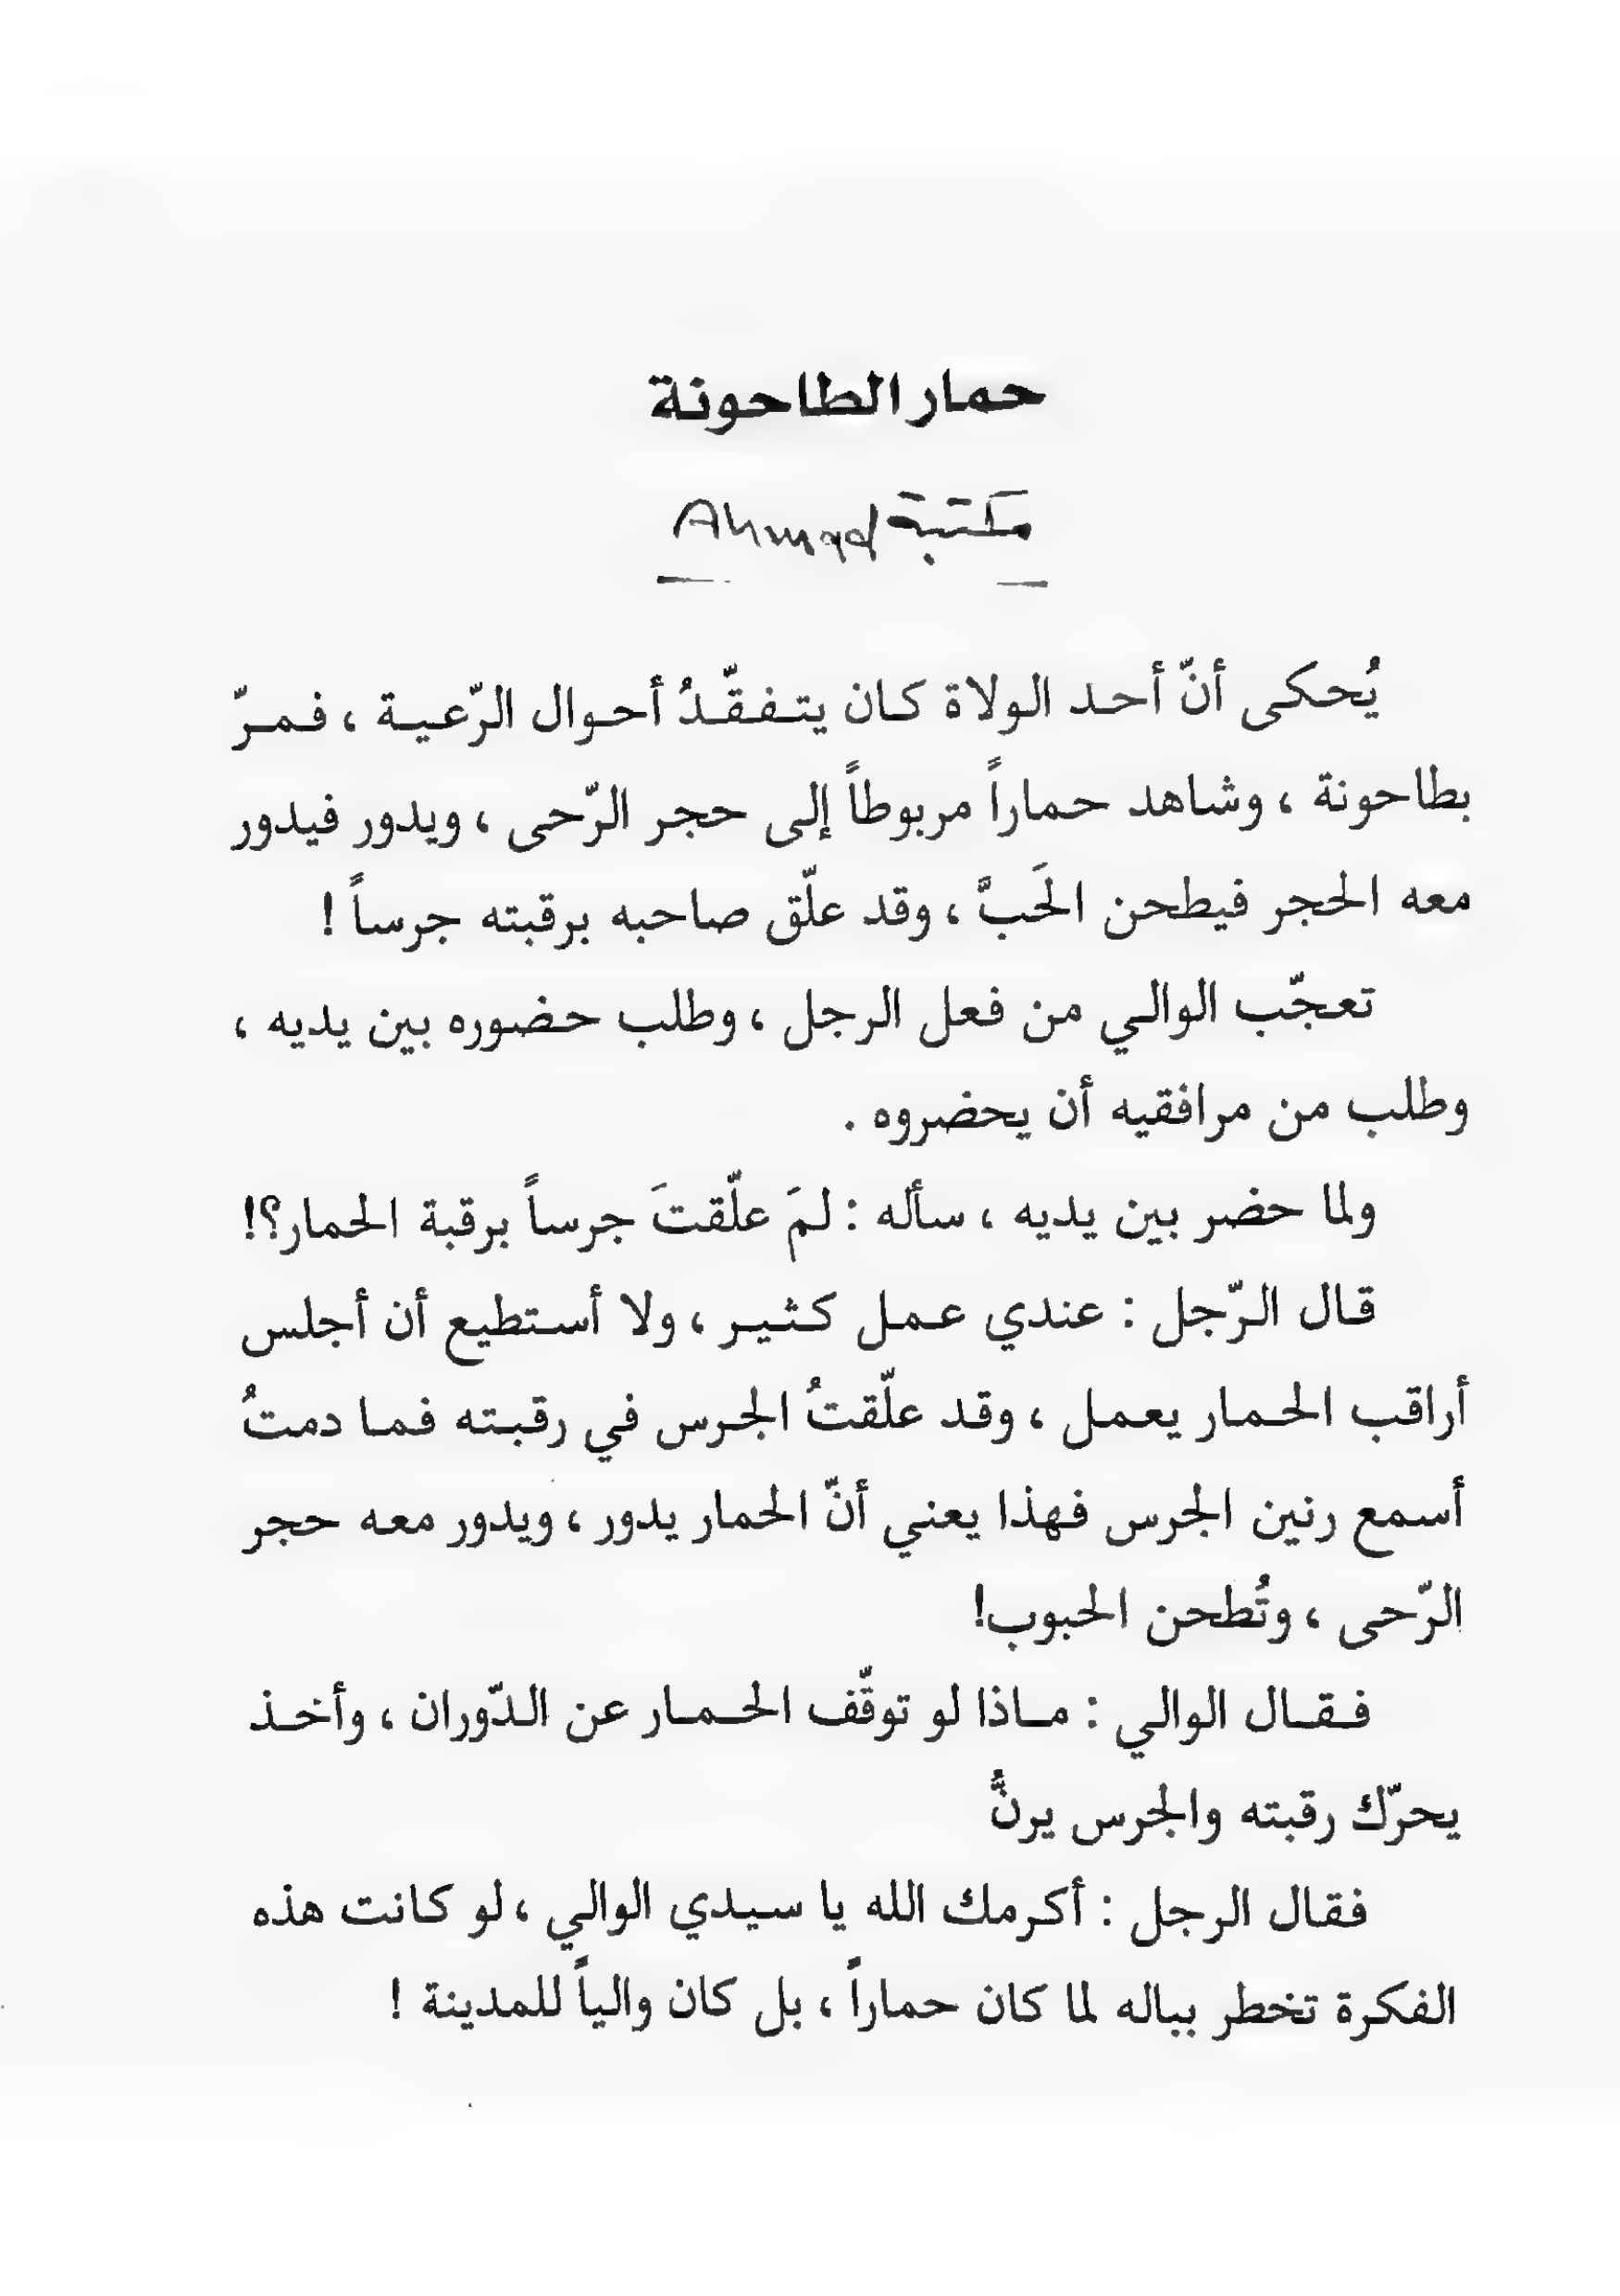 حمار الطاحونة
مكتبة Ahmad
يُحكى أنّ أحد الولاة كان يتفقّدُ أحوال الرّعية ، فمرّ
بطاحونة ، وشاهد حماراً مربوطاً إلى حجر الرّحى ، ويدور فيدور
معه الحجر فيطحن الحَبَّ ، وقد علّق صاحبه برقبته جرساً !
تعجّب الوالي من فعل الرجل ، وطلب حضوره بين يديه ،
وطلب من مرافقيه أن يحضروه .
ولما حضر بين يديه ، سأله : لمَ علّقتَ جرساً برقبة الحمار؟!
قال الرّجل : عندي عمل كثير ، ولا أستطيع أن أجلس
أراقب الحمار يعمل ، وقد علّقتُ الجرس في رقبته فما دمتُ
أسمع رنين الجرس فهذا يعني أنّ الحمار يدور ، ويدور معه حجر
الرّحى ، وتُطحن الحبوب!
فقال الوالي : ماذا لو توقّف الحمار عن الدّوران ، وأخذ
يحرّك رقبته والجرس يرنُّ
فقال الرجل : أكرمك الله يا سيدي الوالي ، لو كانت هذه
الفكرة تخطر بباله لما كان حماراً ، بل كان والياً للمدينة !